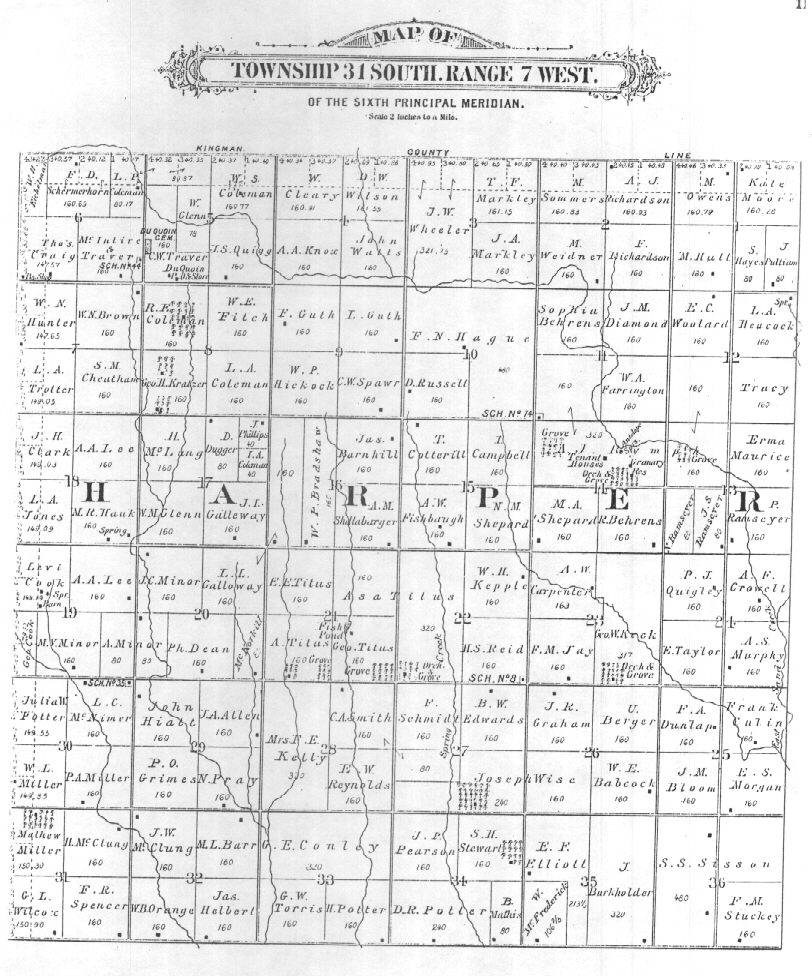 11
MAP OF
TOWNSHIP 31 SOUTH. RANGE 7 WEST.
OF THE SIXTH PRINCIPAL MERIDIAN.
Scale 2 Inches to a Mile.
KINGMAN COUNTY LINE
F. D. L. P. W. S. W. D. W. T. F. M. A. J. M. Kate
Schermerhorn Coleman W. Coleman Cleary Wilson J.W. Markley Sommers Richardson Owens Moore
160.63 80.17 Glenn 160.77 160.91 161.15 160.83 160.93 160.79 160.28
6 78 4 2
Thos. Mc Intire DU QUOIN CEM. John Wheeler J.A. M. F. S. J.
Craig & Traver C.W. Traver J.S. Quigg A.A. Knox Watts 321.75 Markley Weidner Richardson M. Hull Hayes Pulliam
147.57 160 160 160 160 160 160 160 160 160 80 80
SCH. No 44 DuQuoin P.O. & Store
W. N. W.N. Brown R.F. W.E. F. Guth L. Guth F. N. Hague Sophia J.M. E.C. L.A. Spr.
Hunter 160 Coleman Fitch 160 160 Behrens Diamond Woolard Heucock
147.65 160 160 160 160 160 160
7 8 9 10 11 12
L. A. S.M. Geo. H. Kratzer L.A. W. P. C.W. Spawr D. Russell 480 W.A. Tracy
Trotter Cheatham 160 Coleman Hickock 160 160 160 Farrington 160 160
160 160 160 160
SCH. No 74
J. H. A.A. Lee H. D. J. Phillips 40 W. P. Bradshaw Jas. T. I. Grove 320 Erma
Clark 160 Mc Lang Dugger I.A. Coleman 40 160 Barnhill Cotterill Campbell A J Tenant Houses Wm Granary Res Grove Maurice
160 80 160 160 160 160 Orch & Grove 160
18 17 16 15
H A R P E R
L.A. M.R. Hauk W.M. Glenn J.I. A.M. A.W. N M. M.A. R. Behrens V. Ramseyer J.S. Ramseyer P.
Jones 160 160 Galloway Shellabarger Fishbaugh Shepard Shepard 160 80 Ramseyer
Spring 160 160 160 160 160 160
Levi A.A. Lee J.C. Minor L.L. E.E. Titus 160 W.H. A.W. P.J. A.F.
Cook 160 160 Galloway 160 Asa Titus Kepple Carpenter Quigley Crowell
Spr. Barn 160 160 163 160 160
19 20 21 22 24
Geo. Cook M.V. Minor A. Minor Ph. Dean Mc Corkill A. Titus Fish Pond Geo. Titus 320 H.S. Reid F.M. Jay Geo. W. Keck E. Taylor A.S.
160 80 80 160 160 Grove 160 Grove Orch. & Grove 160 160 317 Orch & Grove 160 Murphy
160
SCH. No 35. Creek SCH. N. 81
Julia W. L.C. John J.A. Allen C.A. Smith F. B.W. J.R. U. F.A. Frank
Potter Mc Nimer Hiatt 160 160 Schmidt Edwards Graham Berger Dunlap Culin
160 160 160 160 160 160 160 160
Mrs. F. E.
30 29 Kelly 28 Spring 27 26 25
W. L. P.A. Miller P.O. N. Pray 320 E.W. 80 Joseph Wise W.E. J.M. E.S.
Miller 160 Grimes 160 Reynolds 240 160 Babcock Bloom Morgan
160 160 160 160 160
Mathew H. Mc Clung J.W. M.L. Barr G. E. Conley J.P. S.H. E.F. J. S. S. Sisson
Miller 160 Mc Clung 160 320 Pearson Stewart Elliott
150.30 160 160 160
31 32 33 34 35 36
G. L. F.R. W.B. Orange Jas. G.W. H. Potter D.R. Potter B. W. Mc Frederick 213⅓ Burkholder 480 F.M.
Wilcox Spencer 160 Helbert Torris 160 240 Mathis 106⅔ 320 Stuckey
150.90 160 160 160 80 160